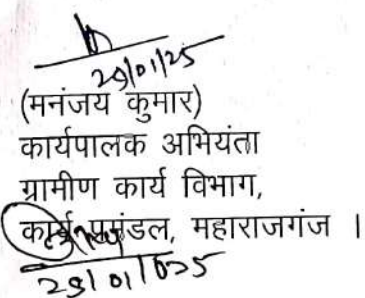 29/01/25
(मनंजय कुमार)
कार्यपालक अभियंता
ग्रामीण कार्य विभाग,
कार्य प्रमंडल, महाराजगंज ।
29/01/025